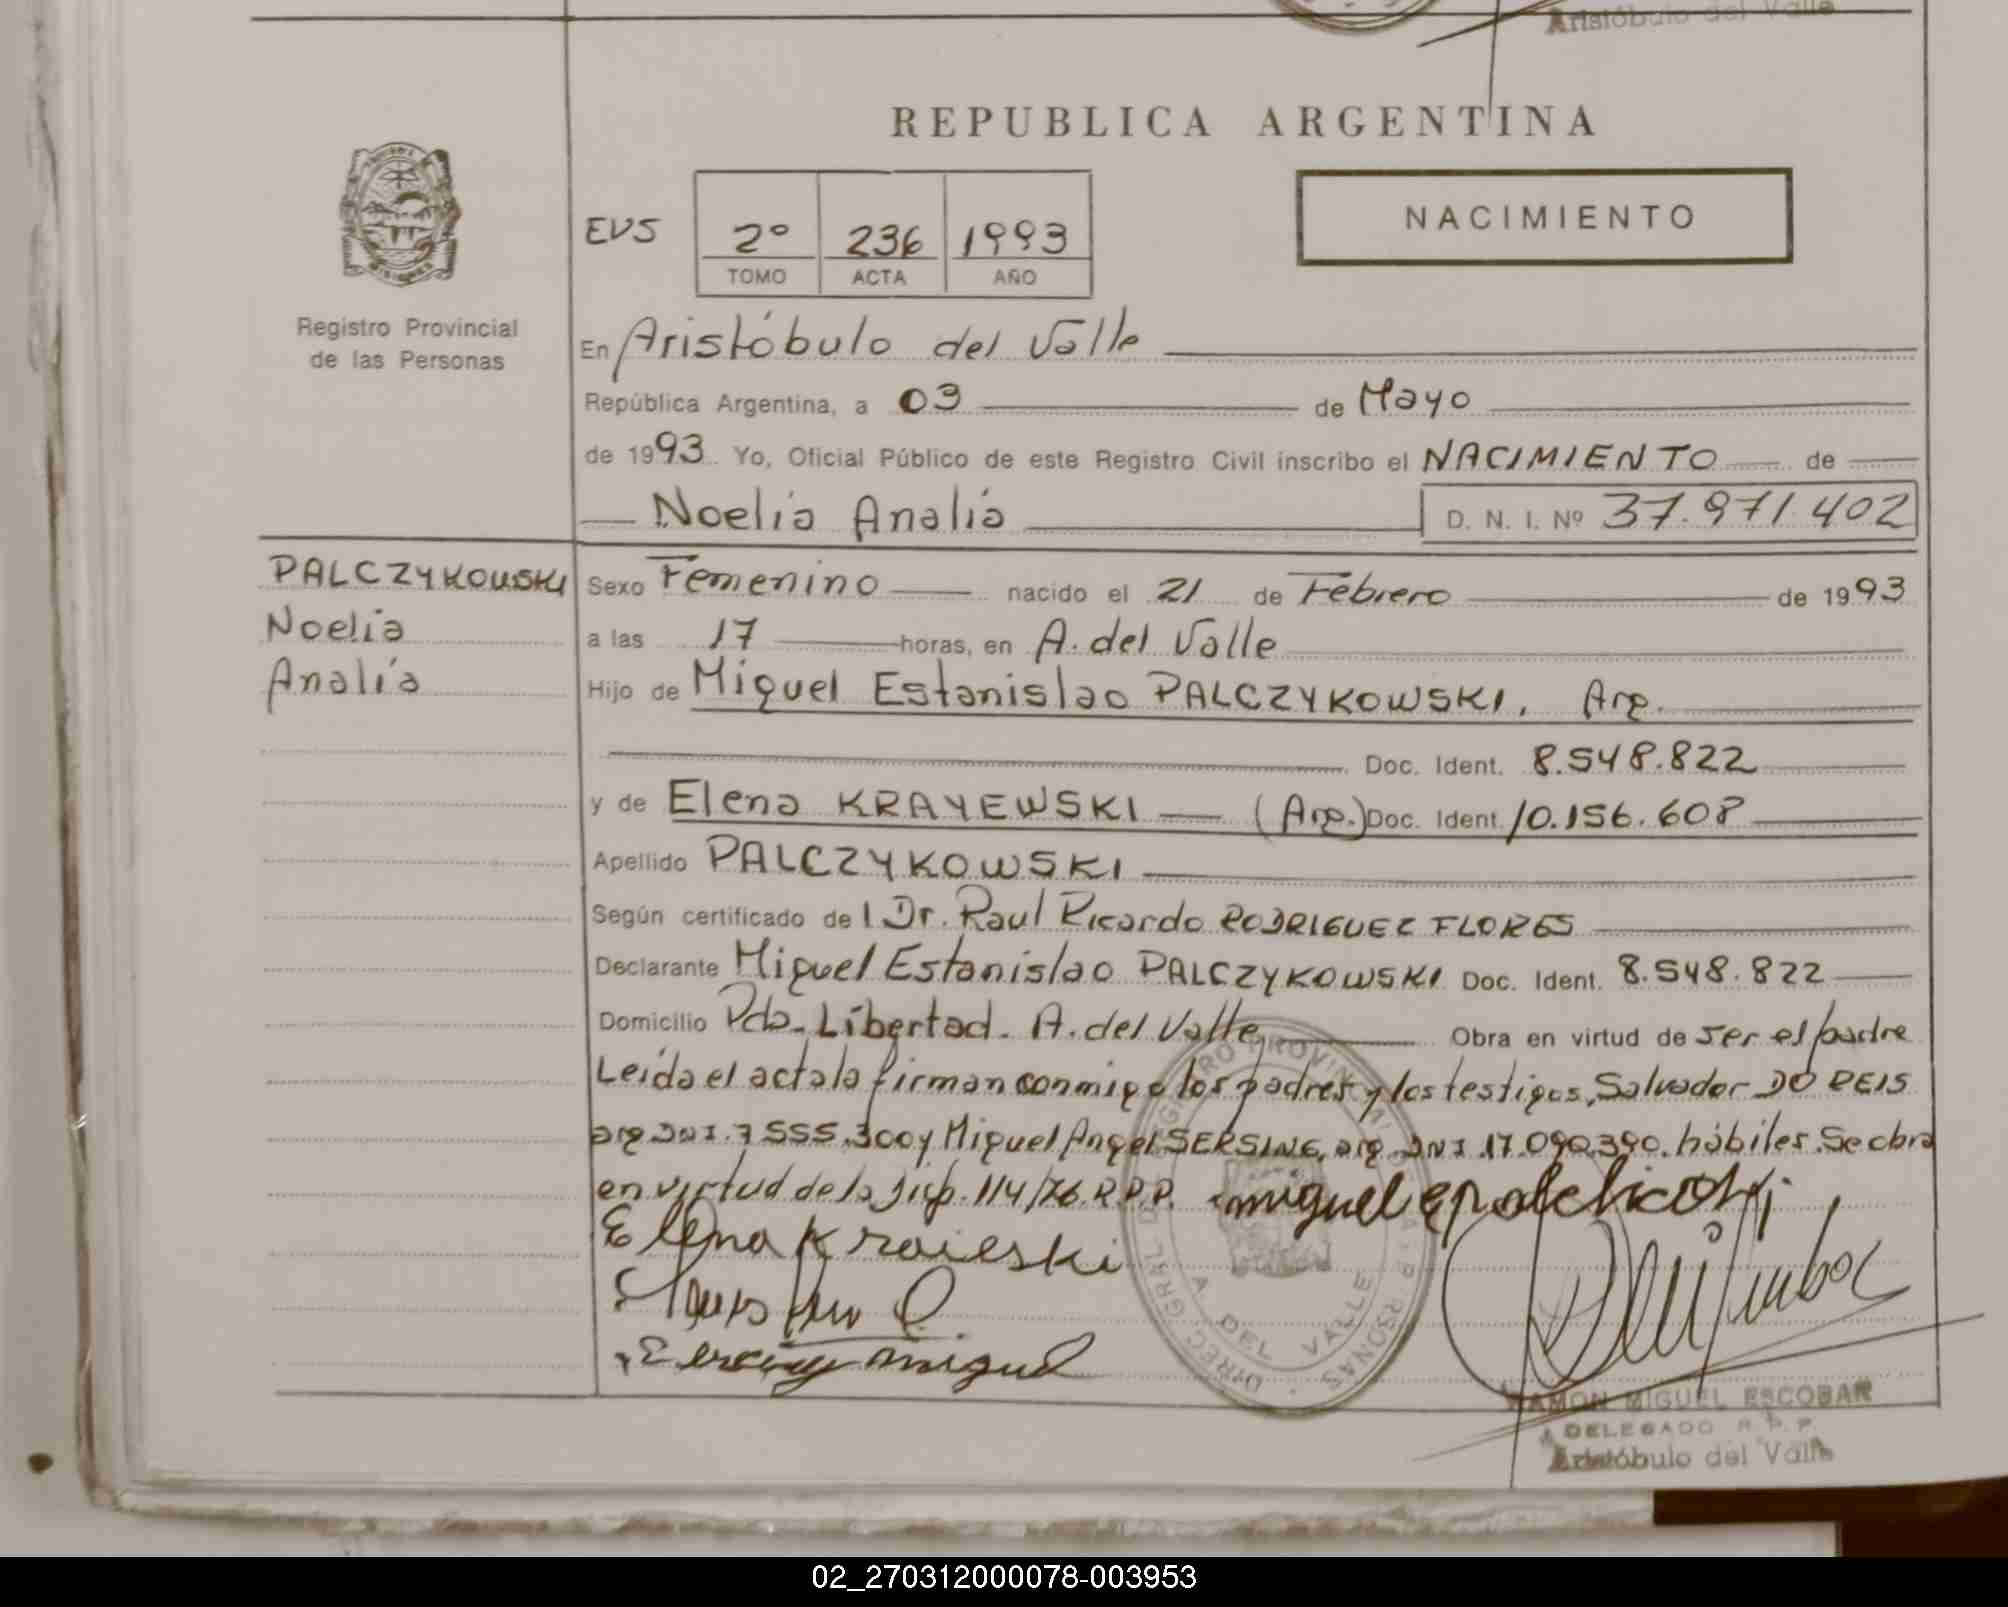 Aristóbulo del Valle
REPUBLICA ARGENTINA
NACIMIENTO
EVS 2º 236 1993
TOMO ACTA AÑO
Registro Provincial
de las Personas
En Aristóbulo del Valle
República Argentina, a 03 de Mayo
de 1993 Yo, Oficial Público de este Registro Civil inscribo el NACIMIENTO de
Noelia Analía D. N. I. Nº 37.971.402
PALCZYKOWSKI
Noelia
Analía
Sexo Femenino nacido el 21 de Febrero de 1993
a las 17 horas, en A. del Valle
Hijo de Miguel Estanislao PALCZYKOWSKI, Arg.
Doc. Ident. 8.548.822
y de Elena KRAYEWSKI (Arg.) Doc. Ident. 10.156.608
Apellido PALCZYKOWSKI
Según certificado de l Dr. Raul Ricardo RODRIGUEZ FLORES
Declarante Miguel Estanislao PALCZYKOWSKI Doc. Ident. 8.548.822
Domicilio Pda. Libertad. A. del Valle Obra en virtud de ser el padre
Leída el acta la firman conmigo los padres y los testigos, Salvador DO REIS
arg DNI. 7.555.300 y Miguel Angel SERSING, arg. DNI 17.090.390. hábiles. Se obra
en virtud de la Disp. 114/76. R.P.P. miguel
Elena Kraieski
miguel
DIREC. GRAL. DEL REGISTRO PROVINCIAL DE LAS PERSONAS
A. DEL VALLE
RAMON MIGUEL ESCOBAR
DELEGADO R. P. P.
Aristóbulo del Valle
02_270312000078-003953